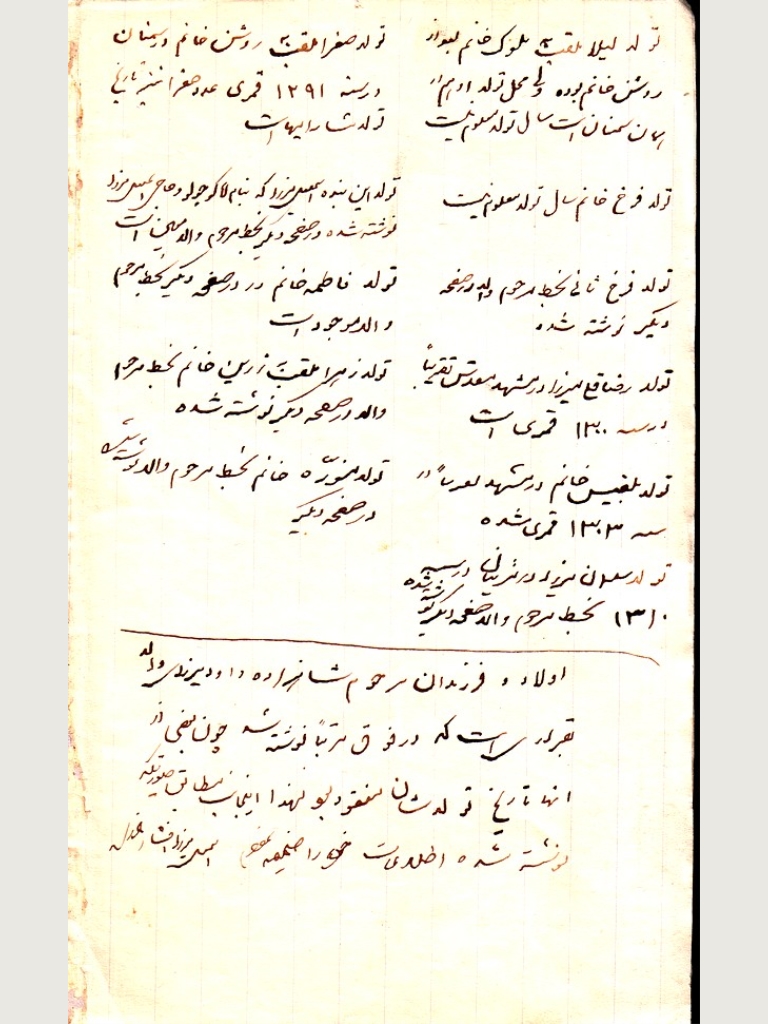 تولد لیلا ملقب به ملوک خانم بعد از
روشن خانم بوده ولی محل تولد او هم در
همان سمنان است سال تولد معلوم نیست
تولد صغرا ملقب به روشن خانم در سمنان
در سنه ۱۲۹۱ قمری عدد صغرا نیز تاریخ
تولد مشارالیها است
تولد فرخ خانم سال تولد معلوم نیست
تولد این بنده اسمعیل میرزا که بنام و حاجی اسمعیل میرزا
نوشته شده در صفحه دیگر بخط مرحوم والد است
تولد فرخ ثانی بخط مرحوم والد در صفحه
دیگر نوشته شده
تولد فاطمه خانم در در صفحه دیگر بخط مرحوم
والد موجود است
تولد رضاقلی میرزا در مشهد مقدس تقریباً
در سنه ۱۳۰۰ قمری است
تولد زهرا ملقب زرین خانم بخط مرحوم
والد در صفحه دیگر نوشته شده
تولد بلقیس خانم در مشهد تقریباً در
سنه ۱۳۰۳ قمری شده
تولد منوره خانم بخط مرحوم والد نوشته شده
در صفحه دیگر
تولد سلیمان میرزا در در سنه
۱۳۱۰ بخط مرحوم والد صفحه دیگر نوشته شده
اولاد و فرزندان مرحوم شاهزاده داود میرزای والد
بقراری است که در فوق مرتباً نوشته شد چون بعضی از
انها تاریخ تولدشان مفقود بود لهذا اینجانب مطابق صورتیکه
نوشته شده اطلاعات خود را ضمیمه نمودم اسمعیل میرزا افشار